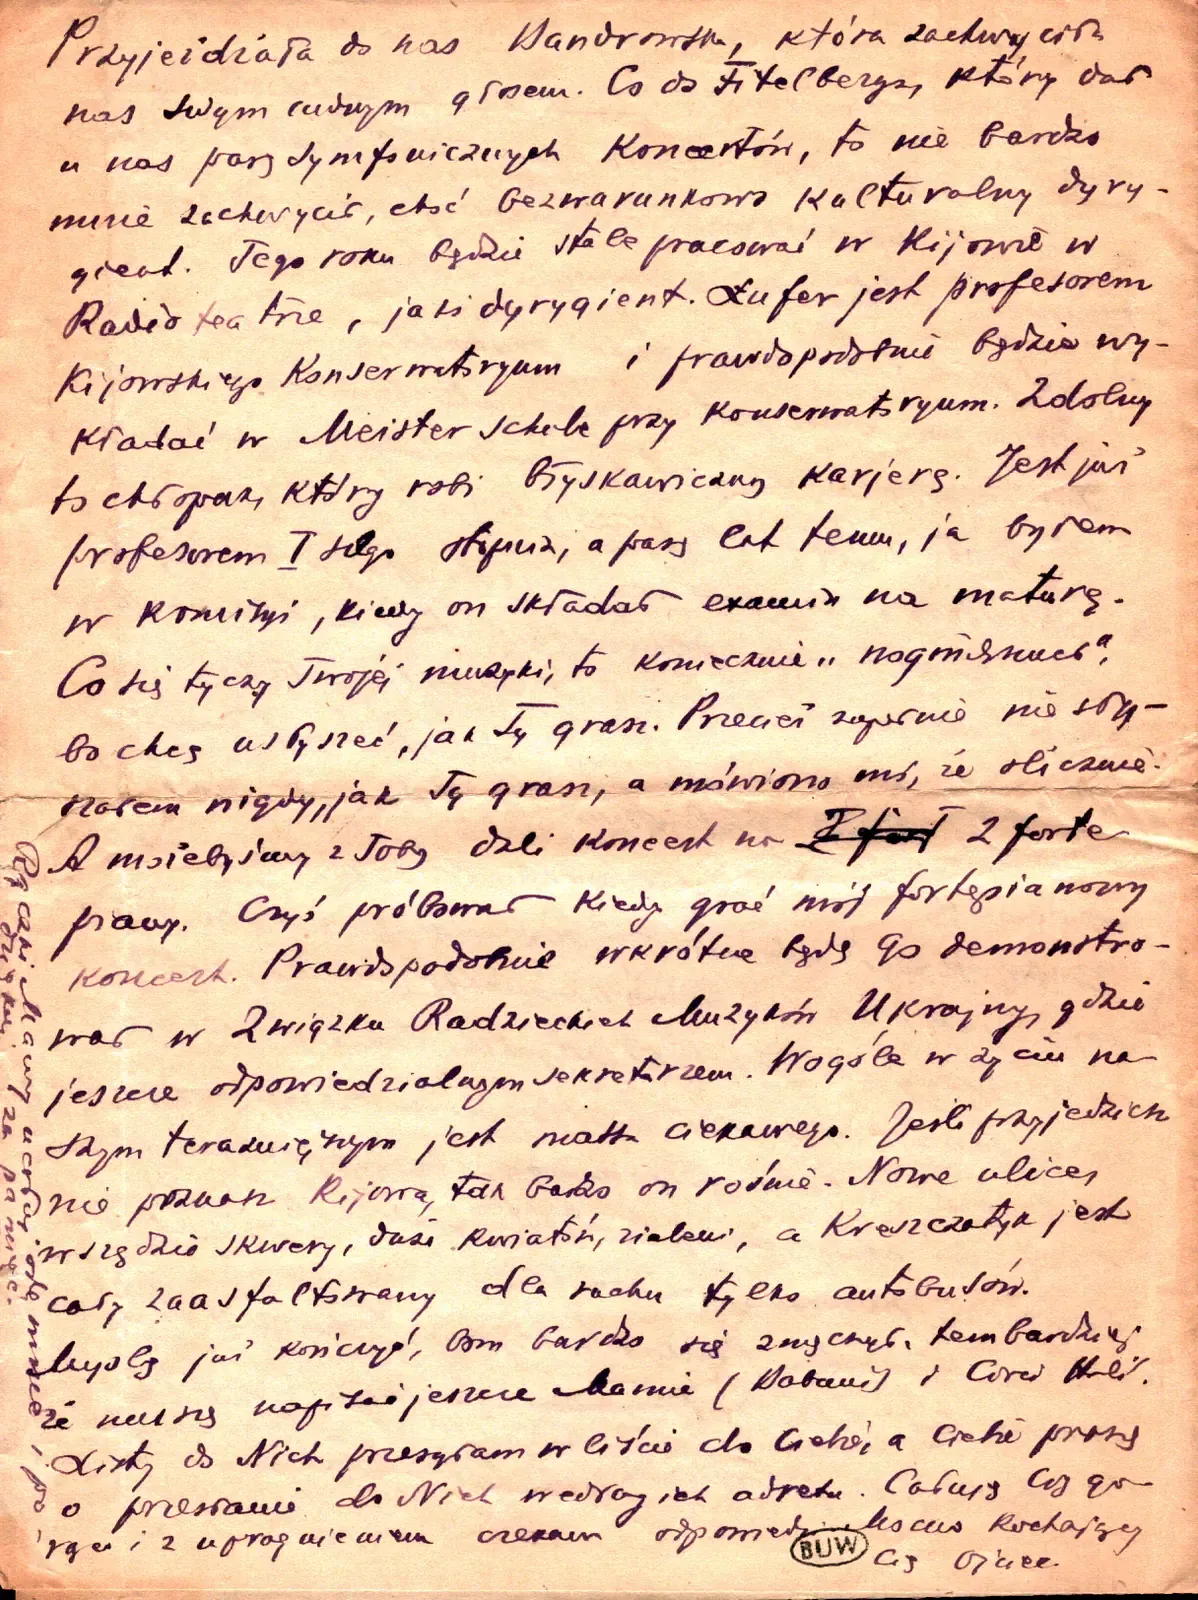 Przyjeżdżała do nas Bandrowska, która zachwyciła
nas swym cudnym głosem. Co do Fitelberga, który dał
u nas parę symfonicznych koncertów, to nie bardzo
mnie zachwycił, choć bezwarunkowo kulturalny dyry-
gient. Tego roku będzie stale pracować w Kijowie w
Radio teatrze, jako dyrygient. Lufer jest profesorem
Kijowskiego Konserwatoryum i prawdopodobnie będzie wy-
kładać w Meister schule przy konserwatoryum. Zdolny
to chłopak, który robi błyskawiczną karjerę. Jest już
profesorem I szego stopnia, a parę lat temu, ja byłem
w komisyi, kiedy on składał examin na maturę.
Co się tyczy Twojej muzyki, to koniecznie
bo chcę usłyszeć, jak Ty grasz. Przecież zupełnie nie sły-
szałem nigdy, jak Ty grasz, a mówiono mi, że ślicznie.
A możebyśmy z Tobą dali koncert na 2 forte
piany. Czyś próbował kiedy grać mój fortepianowy
koncert. Prawdopodobnie wkrótce będę go demonstro-
wał w Związku Radzieckich Muzyków Ukrajiny, gdzie
jeszcze odpowiedzialnym sekretarzem. Wogóle w życiu na-
szym teraźniejszym jest masa ciekawego. Jeśli przyjedziesz
nie poznasz Kijowa, tak bardzo on rośnie. Nowe ulice,
wszędzie skwery, dużo kwiatów, zieleni, a Kreszczatyk jest
cały zaasfaltowany dla ruchu tylko autobusów.
Myślę już kończyć, bom bardzo się zmęczył, tembardziej
że muszę napisać jeszcze Mamie (Babuni) i Cioci Heli.
Listy do Nich przesyłam w liście do Ciebie, a Ciebie proszę
o przesłanie do Nich według ich adresu. Całuję Cię go-
rąco i z upragnieniem czekam odpowiedzi. Mocno kochający
Cię Ojciec
BUW
Rączki Mamy ucałuj ode mnie i po-
dziękuj za pamięć.